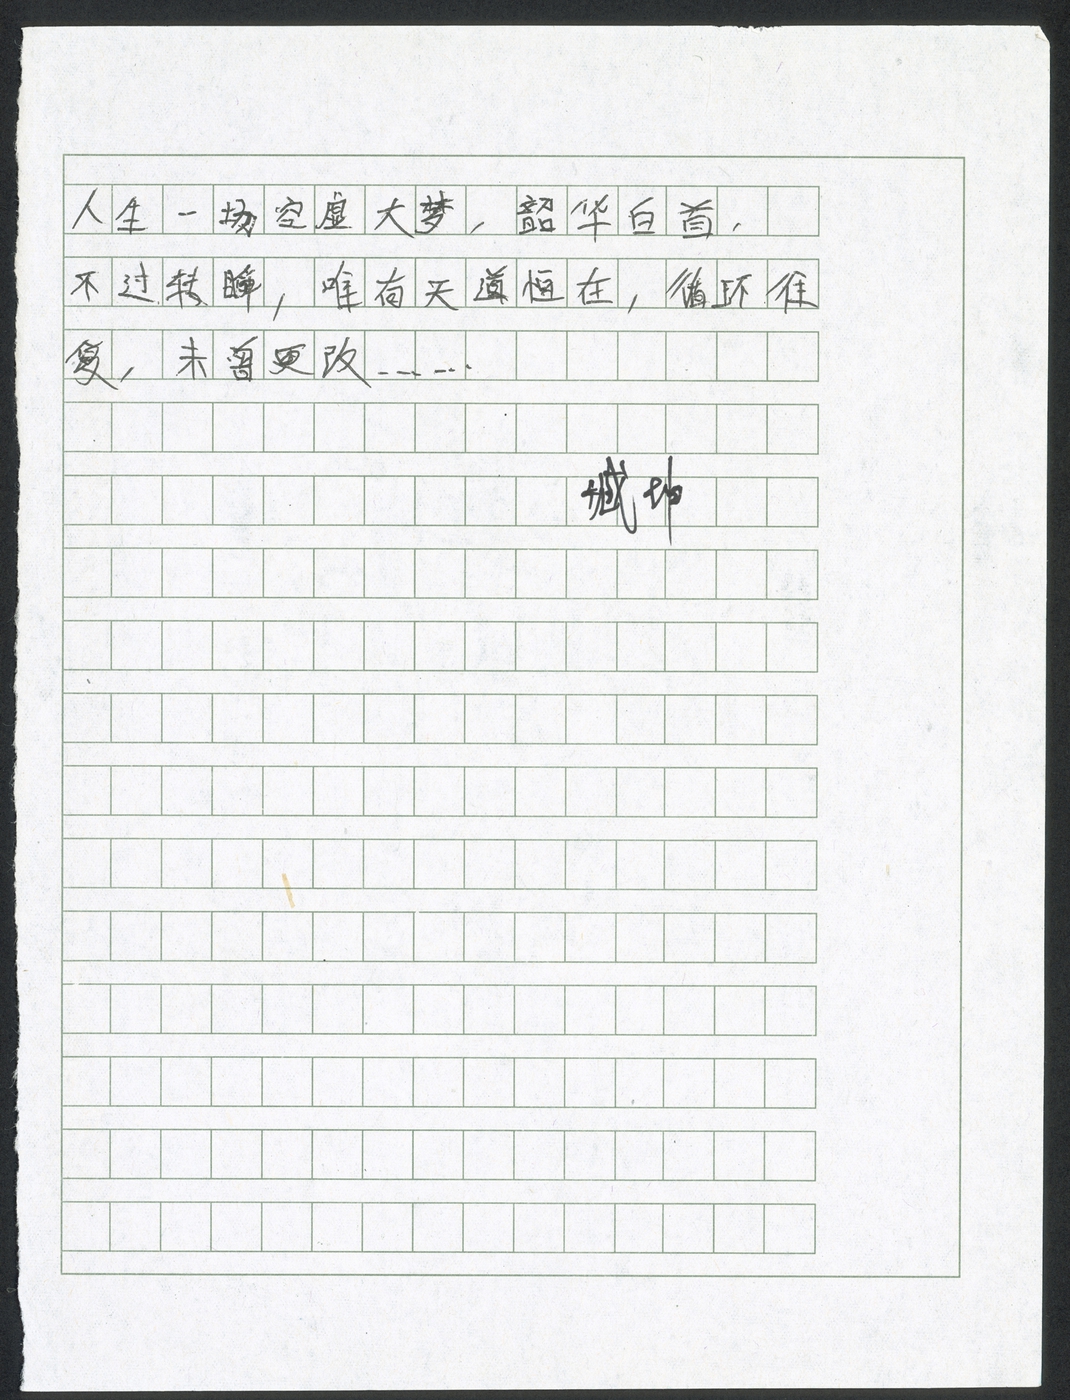 人生一场空虚大梦，韶华白首，
不过转瞬，唯有天道恒在，循环往
复，未曾更改……
臧坤